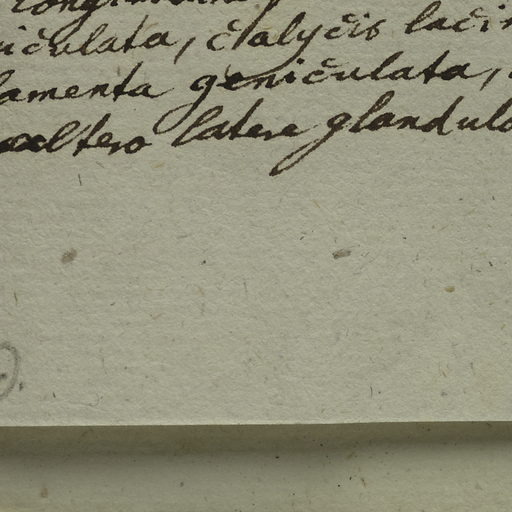 iculata, calycis laci
lamenta geniculata,
altero latere glandulo